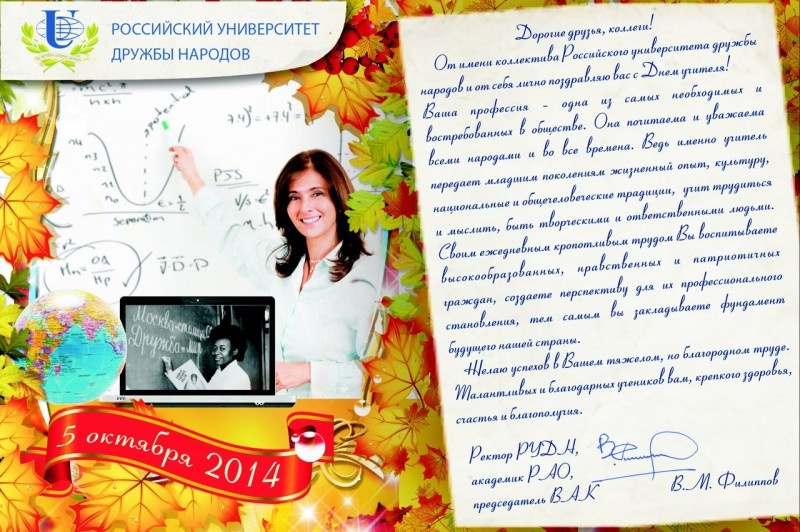 РОССИЙСКИЙ УНИВЕРСИТЕТ
ДРУЖБЫ НАРОДОВ
potential
7.4)² = +7.4²
n4
n3
n2
n1
n0
Separation
PJS
V/s =
Mn = ОД
Hp
V·D-P
Москва-столица С
Дружба-мир
5 октября 2014
Дорогие друзья, коллеги!
От имени коллектива Российского университета дружбы
народов и от себя лично поздравляю вас с Днем учителя!
Ваша профессия - одна из самых необходимых и
востребованных в обществе. Она почитаема и уважаема
всеми народами и во все времена. Ведь именно учитель
передает младшим поколениям жизненный опыт, культуру,
национальные и общечеловеческие традиции, учит трудиться
и мыслить, быть творческими и ответственными людьми.
Своим ежедневным кропотливым трудом Вы воспитываете
высокообразованных, нравственных и патриотичных
граждан, создаете перспективу для их профессионального
становления, тем самым вы закладываете фундамент
будущего нашей страны.
Желаю успехов в Вашем тяжелом, но благородном труде.
Талантливых и благодарных учеников вам, крепкого здоровья,
счастья и благополучия.
Ректор РУДН,
академик РАО,
председатель ВАК
В.М. Филиппов